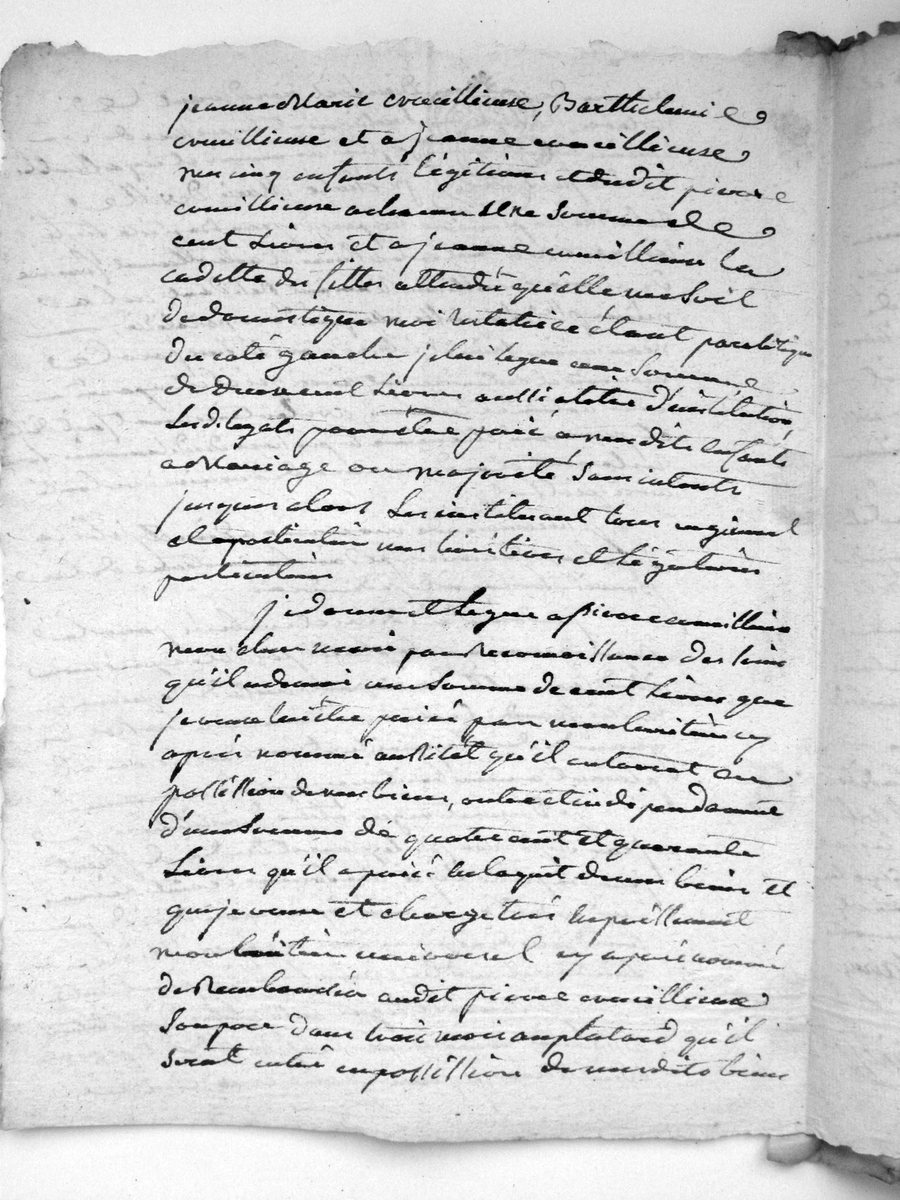 jeanne Marie coueillieuse, Barthelemie
coueillieuse et a jeanne coueillieuse
mes cinq enfants légitimes et dudit pierre
coueillieuse a chacun d'eux la somme de
cent Livres et a jeanne coueillieuse La
cadette des filles attendu qu'elle me soit
de domestique moi testatrice étant paralitique
du coté gauche je lui legue une somme
de deux cent Livres aussi a titre d'institution
Lesdits legats pour être paié a mesdits enfants
a Mariage ou majorité sans interets
jusques alors Les instituant tous
et particulier mes héritiers et Légataires
particuliers
je donne et Legue a Pierre coueillieuse
mon cher mari par Reconnoissance des soins
qu'il a de moi une Somme de cent Livres que
je veux lui être paiée par mon heritier cy
après nommé aussitôt qu'il entrerat en
possession de mes biens, outre et independament
d'une Somme de quatre cent et quarante
Livres qu'il a paié a l'aquit de mes biens Et
que je veux et charge très expressement
mon héritier universel cy après nommé
de Rembourser audit pierre coueillieuse
Son pere dans trois mois au plutard qu'il
serat entré en possession de mesdits biens